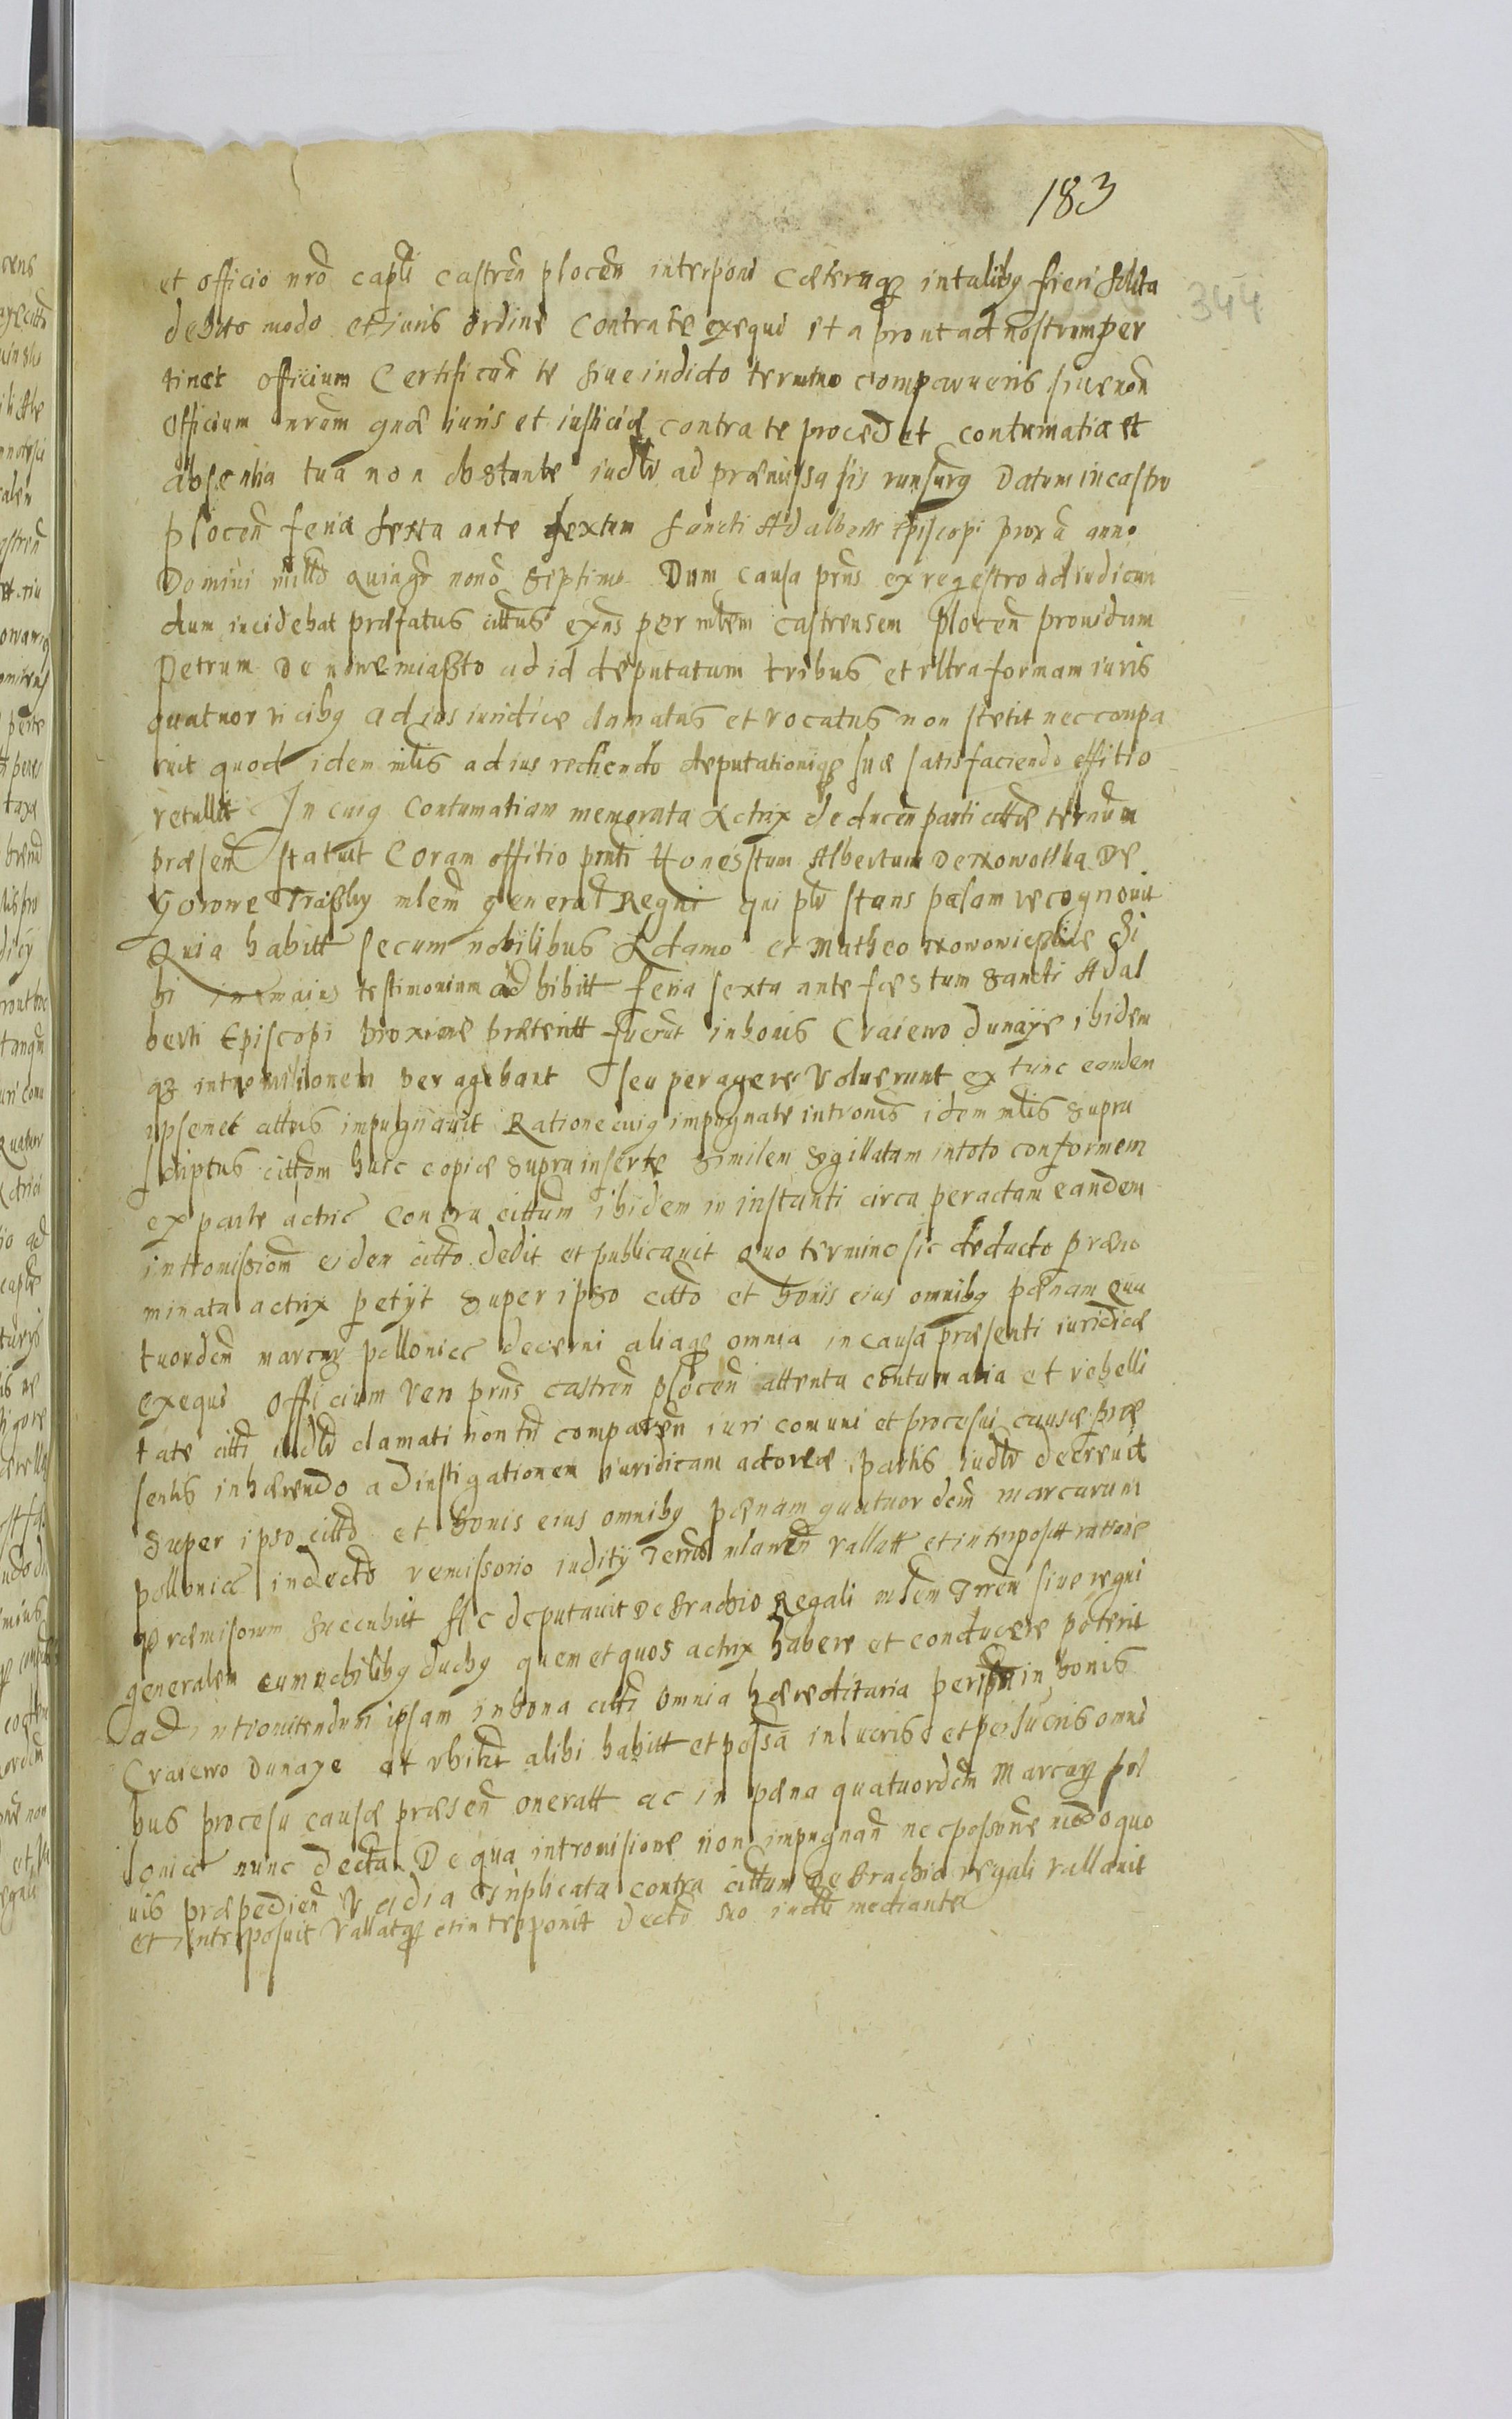 183
344
et officio nrō capli castreñ ploceñ interponi cæteraqȝ in talibȝ fieri solita
debito modo et iuris ordine contra te exequi ita prout ad nostrum per
tinet officium Certificañ te siue indicto termino comparueris siue non
Officium nrum qnd iuris et iusticiæ contra te procedet contumatia et
absentia tua non obstante iudlr ad præmissa sis runsurȝ Datum in castro
ploceñ feria sexta ante festum sancti Adalberti Episcopi prox̃ anno
Domini millō quingō nonō Septimo Dum causa prñs ex regestro ad iudican
dum incidebat præfatus cittus exñs per mlem castrensem ploceñ prouidum
Petrum de nowemiasto ad id deputatum tribus et vltra formam iuris
quatuor vicibȝ ad ius iuridice clamatus et vocatus non stetit nec compa
ruit quod idem mlis ad ius rediendo deputationiqȝ suæ satisfaciendo offitio
retullit In cuiȝ Contumatiam memorata Actrix deducen parti cittæ termum
præseñ statuit Coram offitio pnti Honesstum Albertum de
Gorowe mlem generał Regni qui plr stans palam recognouit
Quia habitt secum nobilibus Adamo et Matheo Si
bi in maius testimonium adhibitt feria sexta ante fæstum Sancti Adal
berti Episcopi proxime præteritt fuerut in bonis Craiewo dunaye ibidem
qȝ intromisionem peragebant seu peragere Voluerunt ex tunc eandem
ipsemet cittus impugnauit Ratione cuiȝ impugnate intromis idem mlis supra
scriptus cittom huic copiæ supra inserte similem sigillatam in toto conformem
ex parte actric contra cittum ibidem in instanti circa peractam eandem
intromissiom eidem citto dedit et publicauit Quo termino sic deducto præno
minata actrix petijt super ipso citto et bonis eius omnibȝ pænam qua
tuordem marcarȝ pollonice decerni aliaqȝ omnia in causa præsenti iuridicæ
exequi Officium Vero prñs castreñ ploceñ attenta contumatia et rebelli
tate citti iudlr clamati non tñ compareñ iuri comuni et procesui causæ præ
sentis inhærendo ad instigationem iuridicam actoreæ partis iudlr decreuit
super ipso citto et bonis eius omnibȝ pænam quatuordem marcarum
pollonice in decto remissorio iuditij Terris vallatt et interposit ratione
Præmisorum succubuit Ac deputauit de brachio Regali mlem Trrem siue regni
generalem cum nobilibȝ duobȝ quem et quos actrix habere et conducere poterit
ad intromitendum ipsam in bona citti omnia hæreditaria in bonis
Craiewo Dunaye et vbiuis alibi habitt et possa in lucris et perlucris omni
bus procesu causæ præseñ oneratt ac in pæna quatuordem Marcarȝ pol
lonice nunc decta De qua intromisione non impugnañ nec possone modo quo
uis præpedieñ Vadia triplicata contra cittum de brachio regali vallauit
et interposuit Vallatqȝ et interponit decto suo iudli mediante